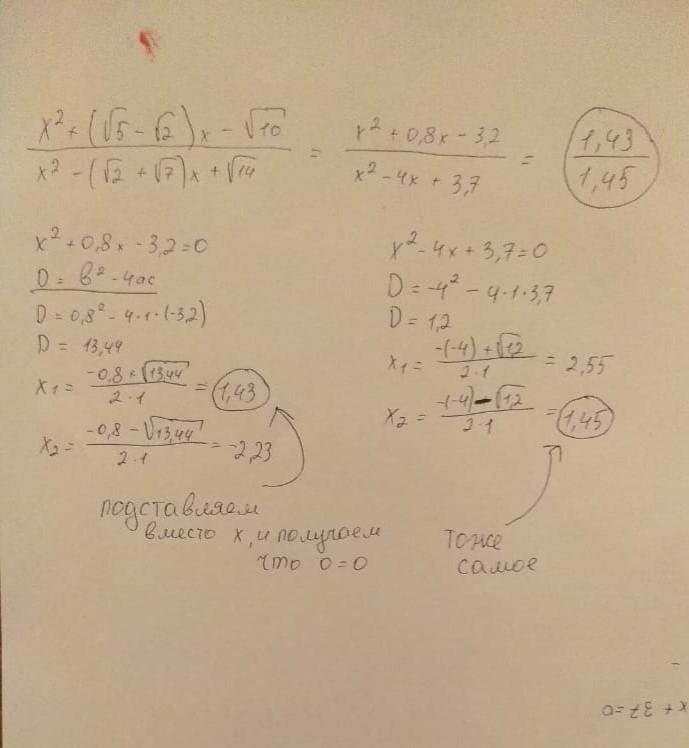 x² + (√5 - √2)x - √10 / x² - (√2 + √7)x + √14 = x² + 0,8x - 3,2 / x² - 4x + 3,7 = 1,43 / 1,45
x² + 0,8x - 3,2 = 0
D = в² - 4ac
D = 0,8² - 4·1·(-3,2)
D = 13,44
x₁ = -0,8 + √13,44 / 2·1 = 1,43
x₂ = -0,8 - √13,44 / 2·1 = -2,23
подставляем
вместо x, и получаем
что 0=0
x² - 4x + 3,7 = 0
D = -4² - 4·1·3,7
D = 1,2
x₁ = -(-4) + √1,2 / 2·1 = 2,55
x₂ = -(-4) - √1,2 / 2·1 = 1,45
тоже
самое
x + 37 = 0